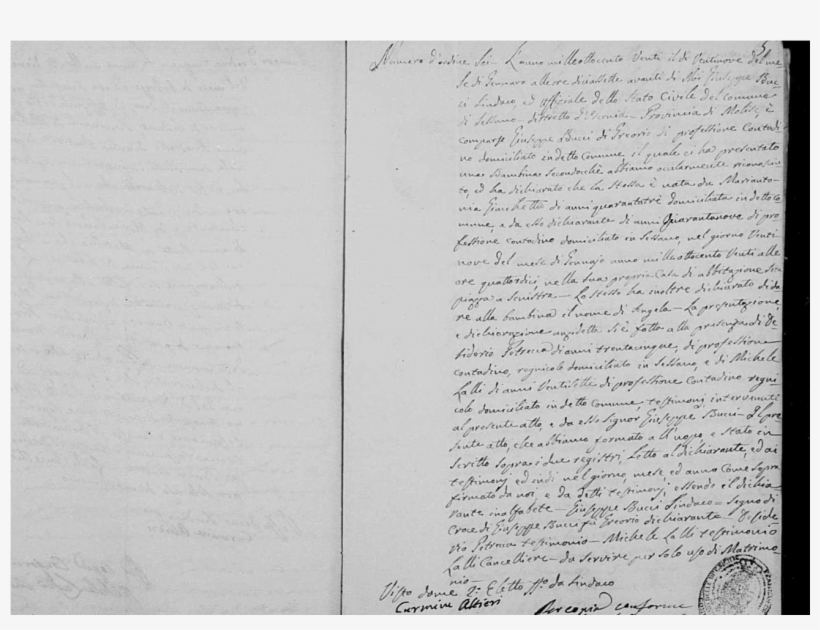 Numero d'ordine Sei. L'anno milleottocento Venti il dì Ventinove del me
se di Gennaro alle ore diciasette avanti di Noi Giuseppe Buc
ci Sindaco, ed officiale dello Stato Civile del comune
di Sessano distretto d'Isernia Provincia di Molise, è
comparso Giuseppe Bucci di Gregorio di professione Contadi
no domiciliato in detto Comune il quale ci ha presentato
una Bambina secondochè abbiamo ocularmente riconosciu
to, ed ha dichiarato che la stessa è nata da Marianto
nia di anni quarantatrè domiciliata in detto co
mune, e da esso dichiarante di anni Quarantanove di pro
fessione contadino domiciliato in Sessano, nel giorno Venti
nove del mese di Gennajo anno mille ottocento Venti alle
ore quattordici, nella sua propria Casa di abbitazione
piazza a sinistra — Lo stesso ha inoltre dichiarato di da
re alla bambina il nome di Angela — La presentazione,
e dichiarazione anzidetta si è fatta alla presenza di De
siderio Petrecca di anni trentacinque, di professione
contadino, regnicolo domiciliato in Sessano, e di Michele
Lalli di anni Ventisette di professione Contadino regni
colo domiciliato in detto Comune, testimonj intervenuti
al presente atto, e da esso Signor Giuseppe Bucci — Il pre
sente atto, che abbiamo formato all'uopo, è stato in
scritto sopra i due registri, Letto al dichiarante, ed ai
testimonj, ed indi nel giorno, mese, ed anno come sopra
firmato da noi, e da detti testimonj, essendo il dichia
rante inalfabete — Giuseppe Bucci Sindaco = Segno di
Croce di Giuseppe Bucci fu Gregorio dichiarante — Deside
rio Petrecca testimonio — Michele Lalli testimonio
Lalli Cancelliere — da servire per solo uso di Matrimo
nio —
Visto da me 2° Eletto ff. da Sindaco
Carmine Altieri
Per copia conforme